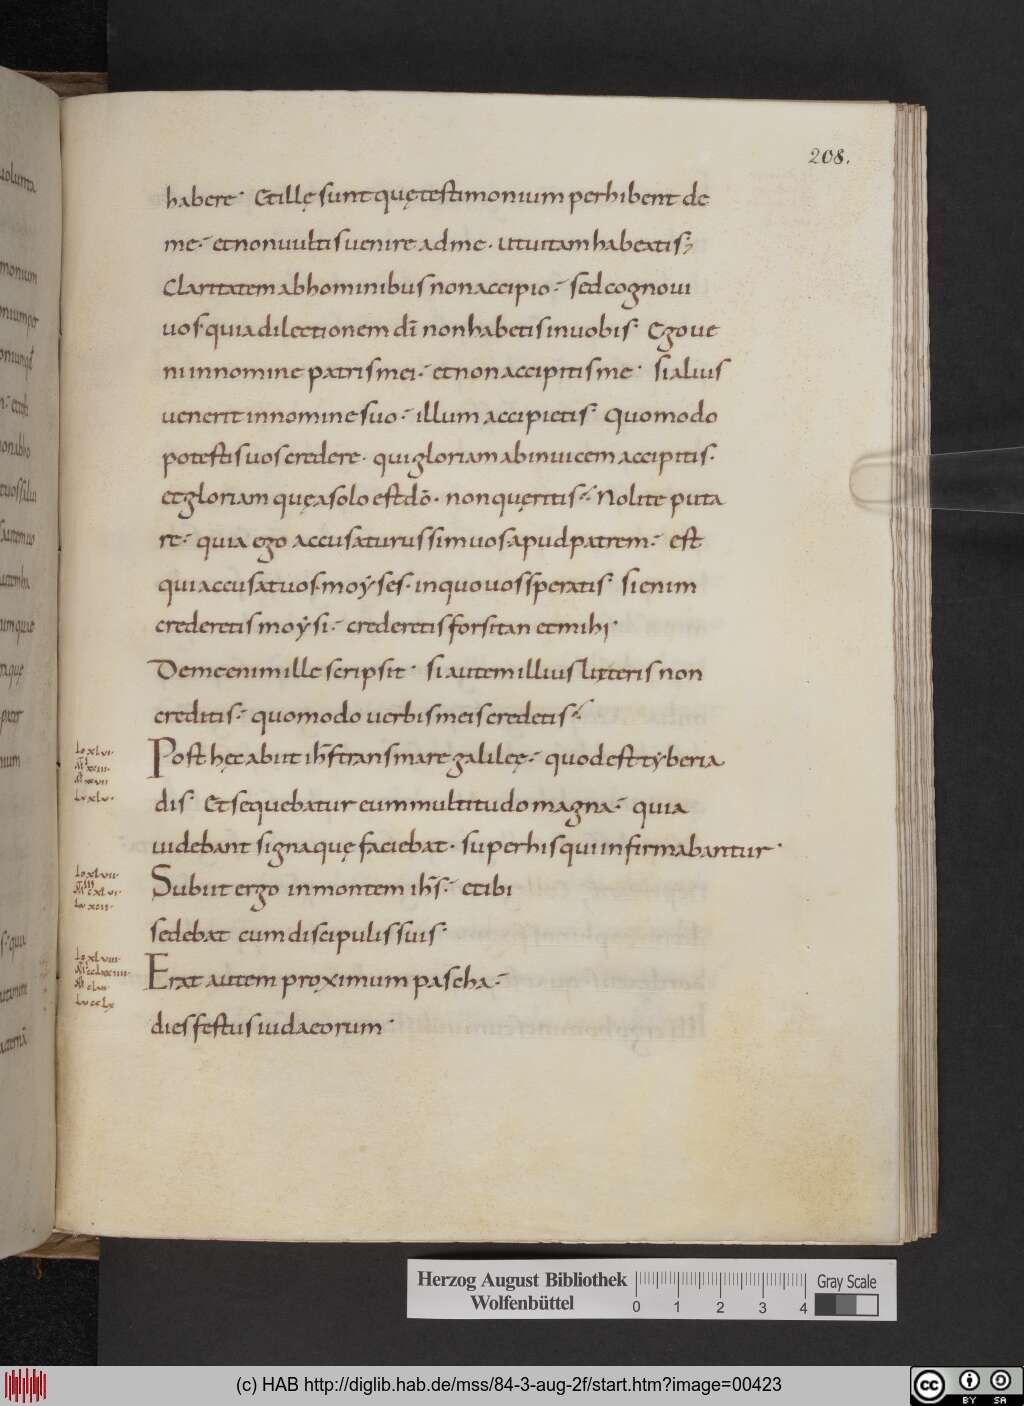 208.
habere · Et illę sunt quę testimonium perhibent de
me · et non uultis uenire ad me · ut uitam habeatis ;
Claritatem ab hominibus non accipio · sed cognoui
uos · quia dilectionem dī non habetis in uobis · Ego ue
ni in nomine patris mei · et non accipitis me · si alius
uenerit in nomine suo · illum accipietis · Quomodo
potestis uos credere · qui gloriam ab inuicem accipitis ·
et gloriam quę a solo est dō · non quęritis · Nolite puta
re · quia ego accusaturus sim uos · apud patrem · est
qui accusat uos · moẏses · in quo uos speratis · si enim
crederetis moẏsi · crederetis forsitan et mihi ·
De me enim ille scripsit · si autem illius litteris non
creditis · quomodo uerbis meis credetis ·
Post hęc abiit ihs̄ trans mare galileę · quod est tẏberia
dis · Et sequebatur eum multitudo magna · quia
uidebant signa quę faciebat · super his qui infirmabantur ·
Subiit ergo in montem ihs̄ · et ibi
sedebat cum discipulis suis ·
Erat autem proximum pascha ·
dies festus iudaeorum ·
Herzog August Bibliothek
Wolfenbüttel
0 1 2 3 4
Gray Scale
(c) HAB http://diglib.hab.de/mss/84-3-aug-2f/start.htm?image=00423
cc BY SA